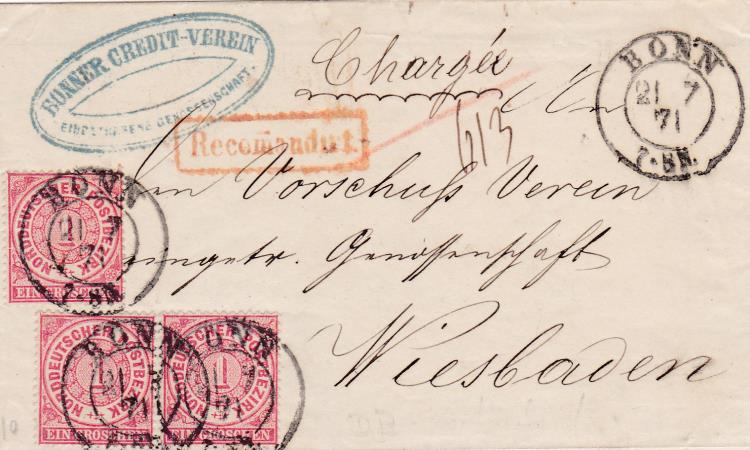 BONNER CREDIT-VEREIN
EINGETRAGENE GENOSSENSCHAFT.
Chargée
Recomandirt.
613
An
den Vorschuss Verein
eingetr. Genossenschaft
Wiesbaden
BONN
21 7
71
7-8N.
NORDDEUTSCHER POSTBEZIRK
EIN GROSCHEN
BONN
21 7
71
7-8N.
NORDDEUTSCHER POSTBEZIRK
1
EIN GROSCHEN
BONN
21
71
NORDDEUTSCHER POSTBEZIRK
1
EIN GROSCHEN
BONN
7
71